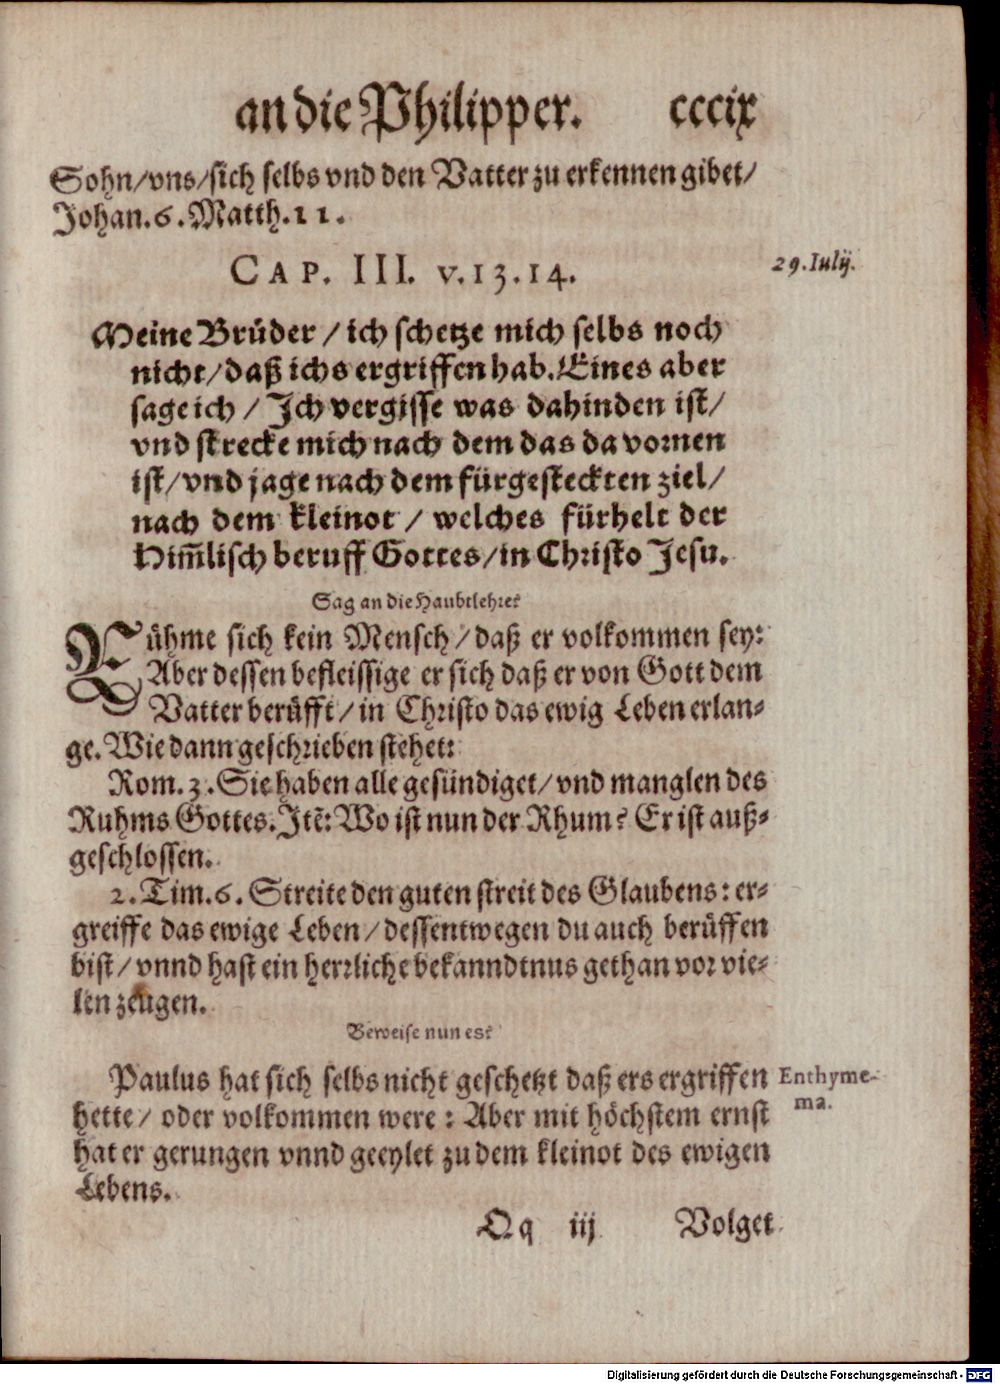 an die Philipper. cccix
Sohn/vns/sich selbs vnd den Vatter zu erkennen gibet/
Johan.6.Matth.11.
CAP. III. v.13.14.
29.Iulij.
Meine Brüder / ich schetze mich selbs noch
nicht/daß ichs ergriffen hab. Eines aber
sage ich / Ich vergisse was dahinden ist/
vnd strecke mich nach dem das da vornen
ist/vnd jage nach dem fürgesteckten ziel/
nach dem kleinot / welches fürhelt der
Him̃lisch beruff Gottes/in Christo Jesu.
Sag an die Haubtlehre?
Rühme sich kein Mensch/daß er volkommen sey:
Aber dessen befleissige er sich daß er von Gott dem
Vatter berüfft/in Christo das ewig Leben erlan-
ge. Wie dann geschrieben stehet:
Rom.3. Sie haben alle gesündiget/vnd manglen des
Ruhms Gottes. Itẽ: Wo ist nun der Rhum? Er ist auß-
geschlossen.
2.Tim.6. Streite den guten streit des Glaubens: er-
greiffe das ewige Leben/dessentwegen du auch berüffen
bist/vnnd hast ein herrliche bekanndtnus gethan vor vie-
len zeugen.
Beweise nun es?
Paulus hat sich selbs nicht geschetzt daß ers ergriffen
hette/ oder volkommen were: Aber mit höchstem ernst
hat er gerungen vnnd geeylet zu dem kleinot des ewigen
Lebens.
Enthyme-
ma.
Qq iij Volget
Digitalisierung gefördert durch die Deutsche Forschungsgemeinschaft - DFG